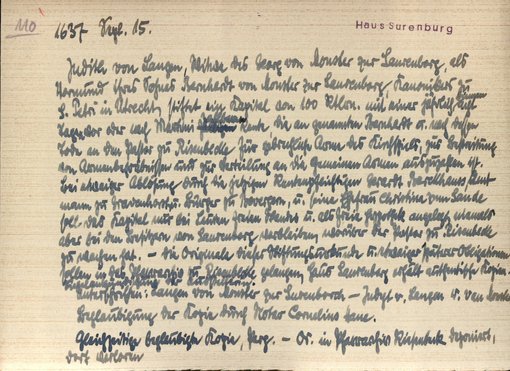 110
1637 Sept. 15.
Haus Surenburg
Judith von Langen, Witwe des Georg von Monster zur Surenborg, als
Vormund ihres Sohnes Bernhardt von Monster zur Surenborg, Kanonikus zu
S. Petri in Utrecht, stiftet ein Kapital von 100 Rtlrn. mit einer jährlich acht
Tage vor oder nach Martini Rente, die an genannten Bernhardt u. nach dessen
Tode an den Pastor zu Riesenbeck für gebrechliche Arme des Kirchspiels, zur Bestreitung
von Armenbegräbnissen und zur Verteilung an die gemeinen Armen auszuzahlen ist.
Bei etwaiger Ablösung durch die jetzigen Rentenpflichtigen Gerardt Amt
mann zu u. Bürger zu Bevergern, u. seine Ehefrau Christina zum Sande
soll das Kapital nur bei Leuten freien Standes u. als freie Hypothek angelegt niemals
aber bei den Besitzern von Surenborg verbleiben, worüber der Pastor zu Riesenbeck
zu wachen hat. - Die Originale dieser Stiftungsurkunde u. etwaiger späterer Obligationen
sollen in das Pfarrarchiv zu Riesenbeck gelangen, Haus Surenberg erhält authentische Kopien.
Unterschriften: von Monster zur Surenborch - Judyt v. Langen w. van
Beglaubigung der Kopie durch Notar Cornelius
Gleichzeitige beglaubigte Kopie, Perg. - Or. in Pfarrarchiv Riesenbeck deponiert,
dort verloren